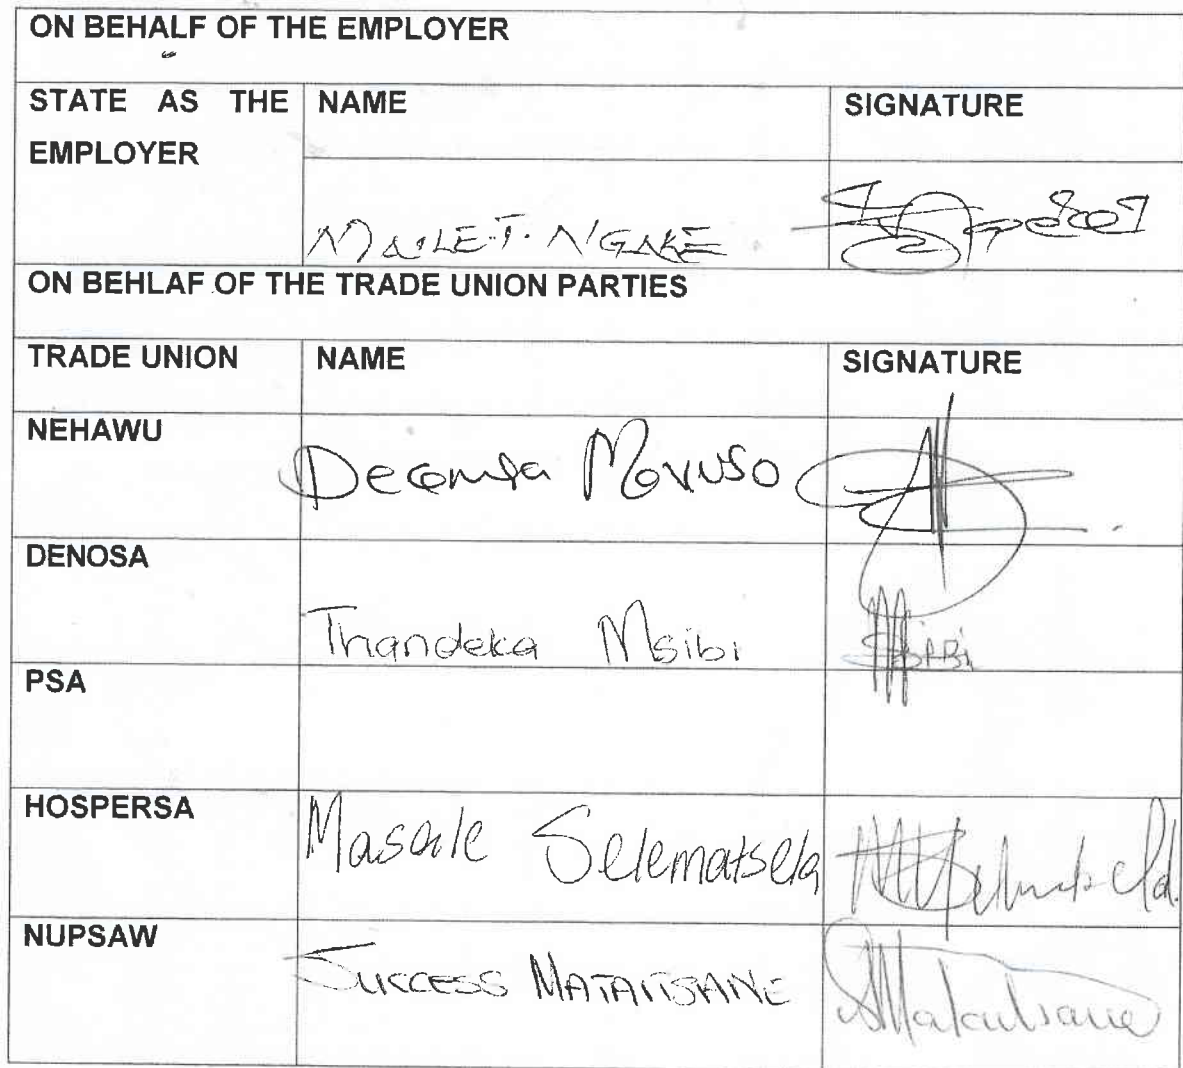 ON BEHALF OF THE EMPLOYER
STATE AS THE EMPLOYER
NAME
SIGNATURE
NGAKE
ON BEHLAF OF THE TRADE UNION PARTIES
TRADE UNION NAME SIGNATURE
NEHAWU Movuso
DENOSA Thandeka Msibi
PSA
HOSPERSA Masale Selematsela
NUPSAW SUCCESS MATAITSANE